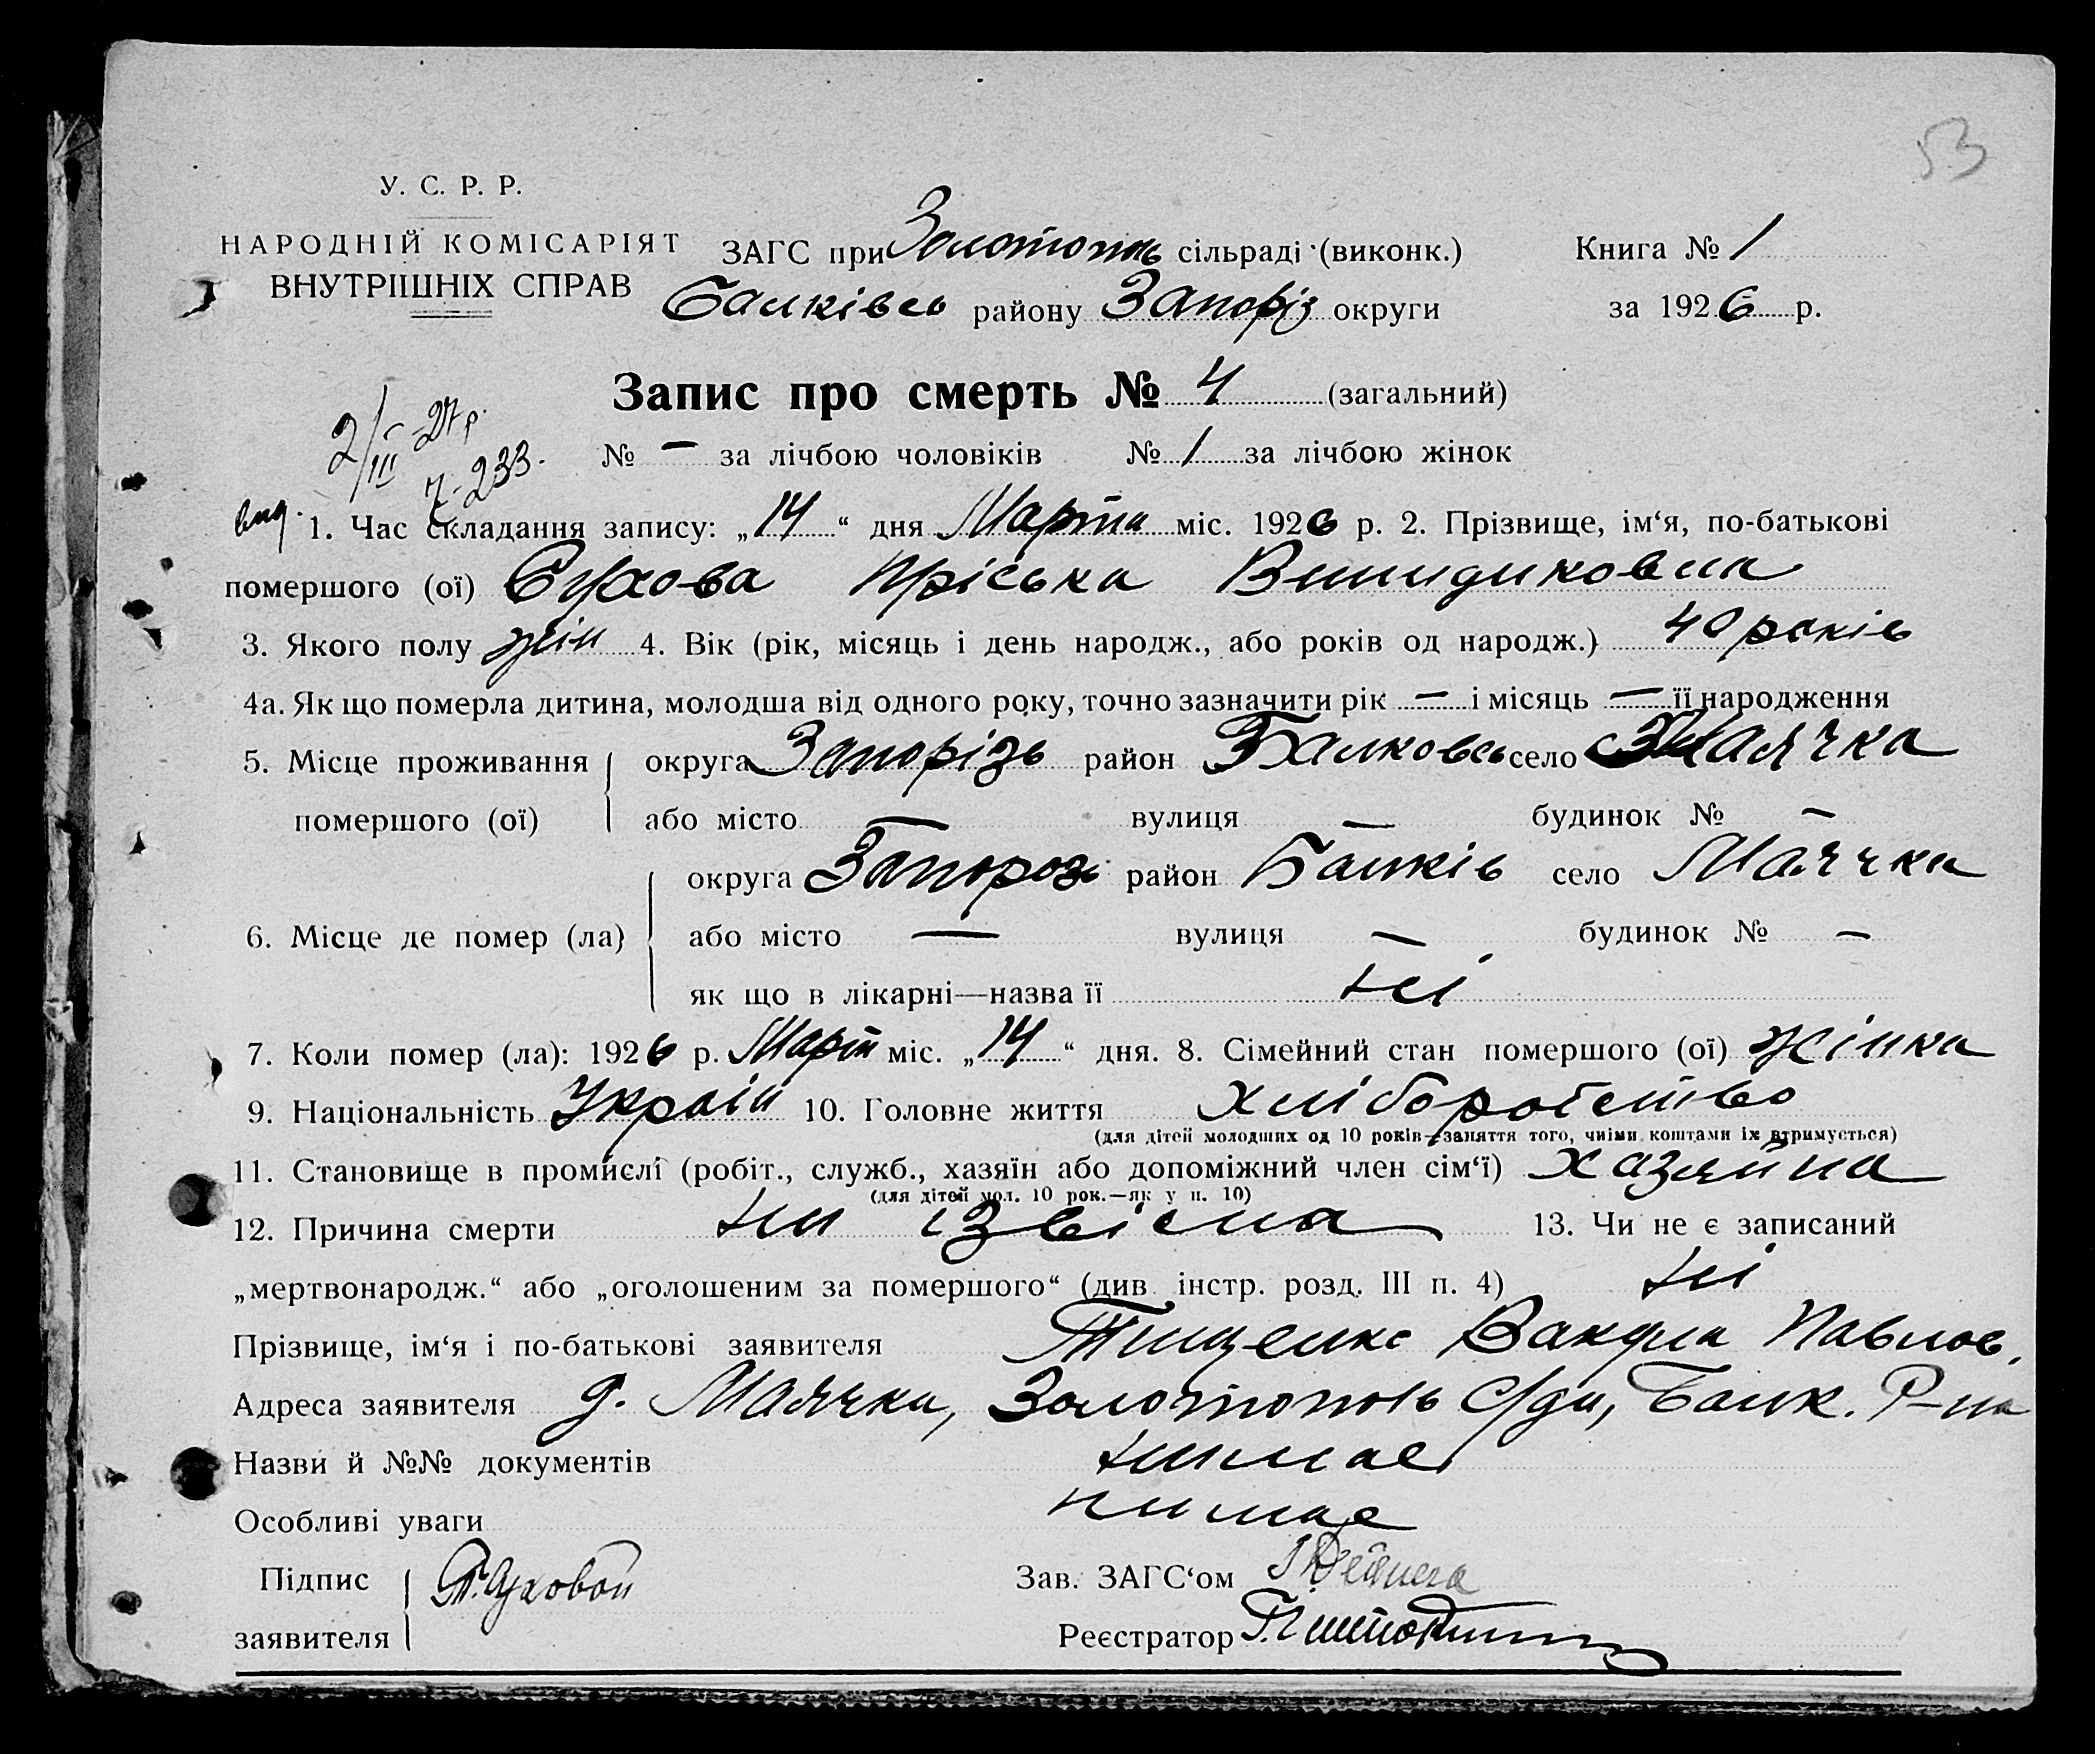 53
У. С. Р. Р.
НАРОДНІЙ КОМІСАРІЯТ
ВНУТРІШНІХ СПРАВ
ЗАГС при Золотопіль сільраді (виконк.) Книга № 1
Балківсь району Запоріз округи за 1926 р.
Запис про смерть № 4 (загальний)
№ — за лічбою чоловіків № 1 за лічбою жінок
1. Час складання запису: „14“ дня Марта міс. 1926 р. 2. Прізвище, ім‘я, по-батькові
помершого (ої) Сухова Пріська
3. Якого полу жін 4. Вік (рік, місяць і день народж., або років од народж.) 40 років
4а. Як що померла дитина, молодша від одного року, точно зазначити рік — і місяць — її народження
5. Місце проживання округа Запорізь район Балковсь село Маячка
помершого (ої) або місто — вулиця — будинок № —
округа Запорозь район Балків село Маячка
6. Місце де помер (ла) або місто — вулиця — будинок № —
як що в лікарні—назва її ні
7. Коли помер (ла): 1926 р. Март міс. „14“ дня. 8. Сімейний стан помершого (ої) жінка
9. Національність Україн 10. Головне життя хліборобство
(для дітей молодших од 10 років—заняття того, чиїми коштами їх втримується)
11. Становище в промислі (робіт., служб., хазяїн або допоміжний член сім‘ї) хазяйка
(для дітей мол. 10 рок.—як у п. 10)
12. Причина смерти ни ізвісна 13. Чи не є записаний
„мертвонародж.“ або „оголошеним за помершого“ (див. інстр. розд. III п. 4) ні
Прізвище, ім‘я і по-батькові заявителя Тищенко Вакула Павлов.
Адреса заявителя д. Маячка, Золотопіль с/ди, Балк. Р-на
Назви й №№ документів нимає
Особливі уваги нимає
Підпис Зав. ЗАГС‘ом
заявителя Реєстратор